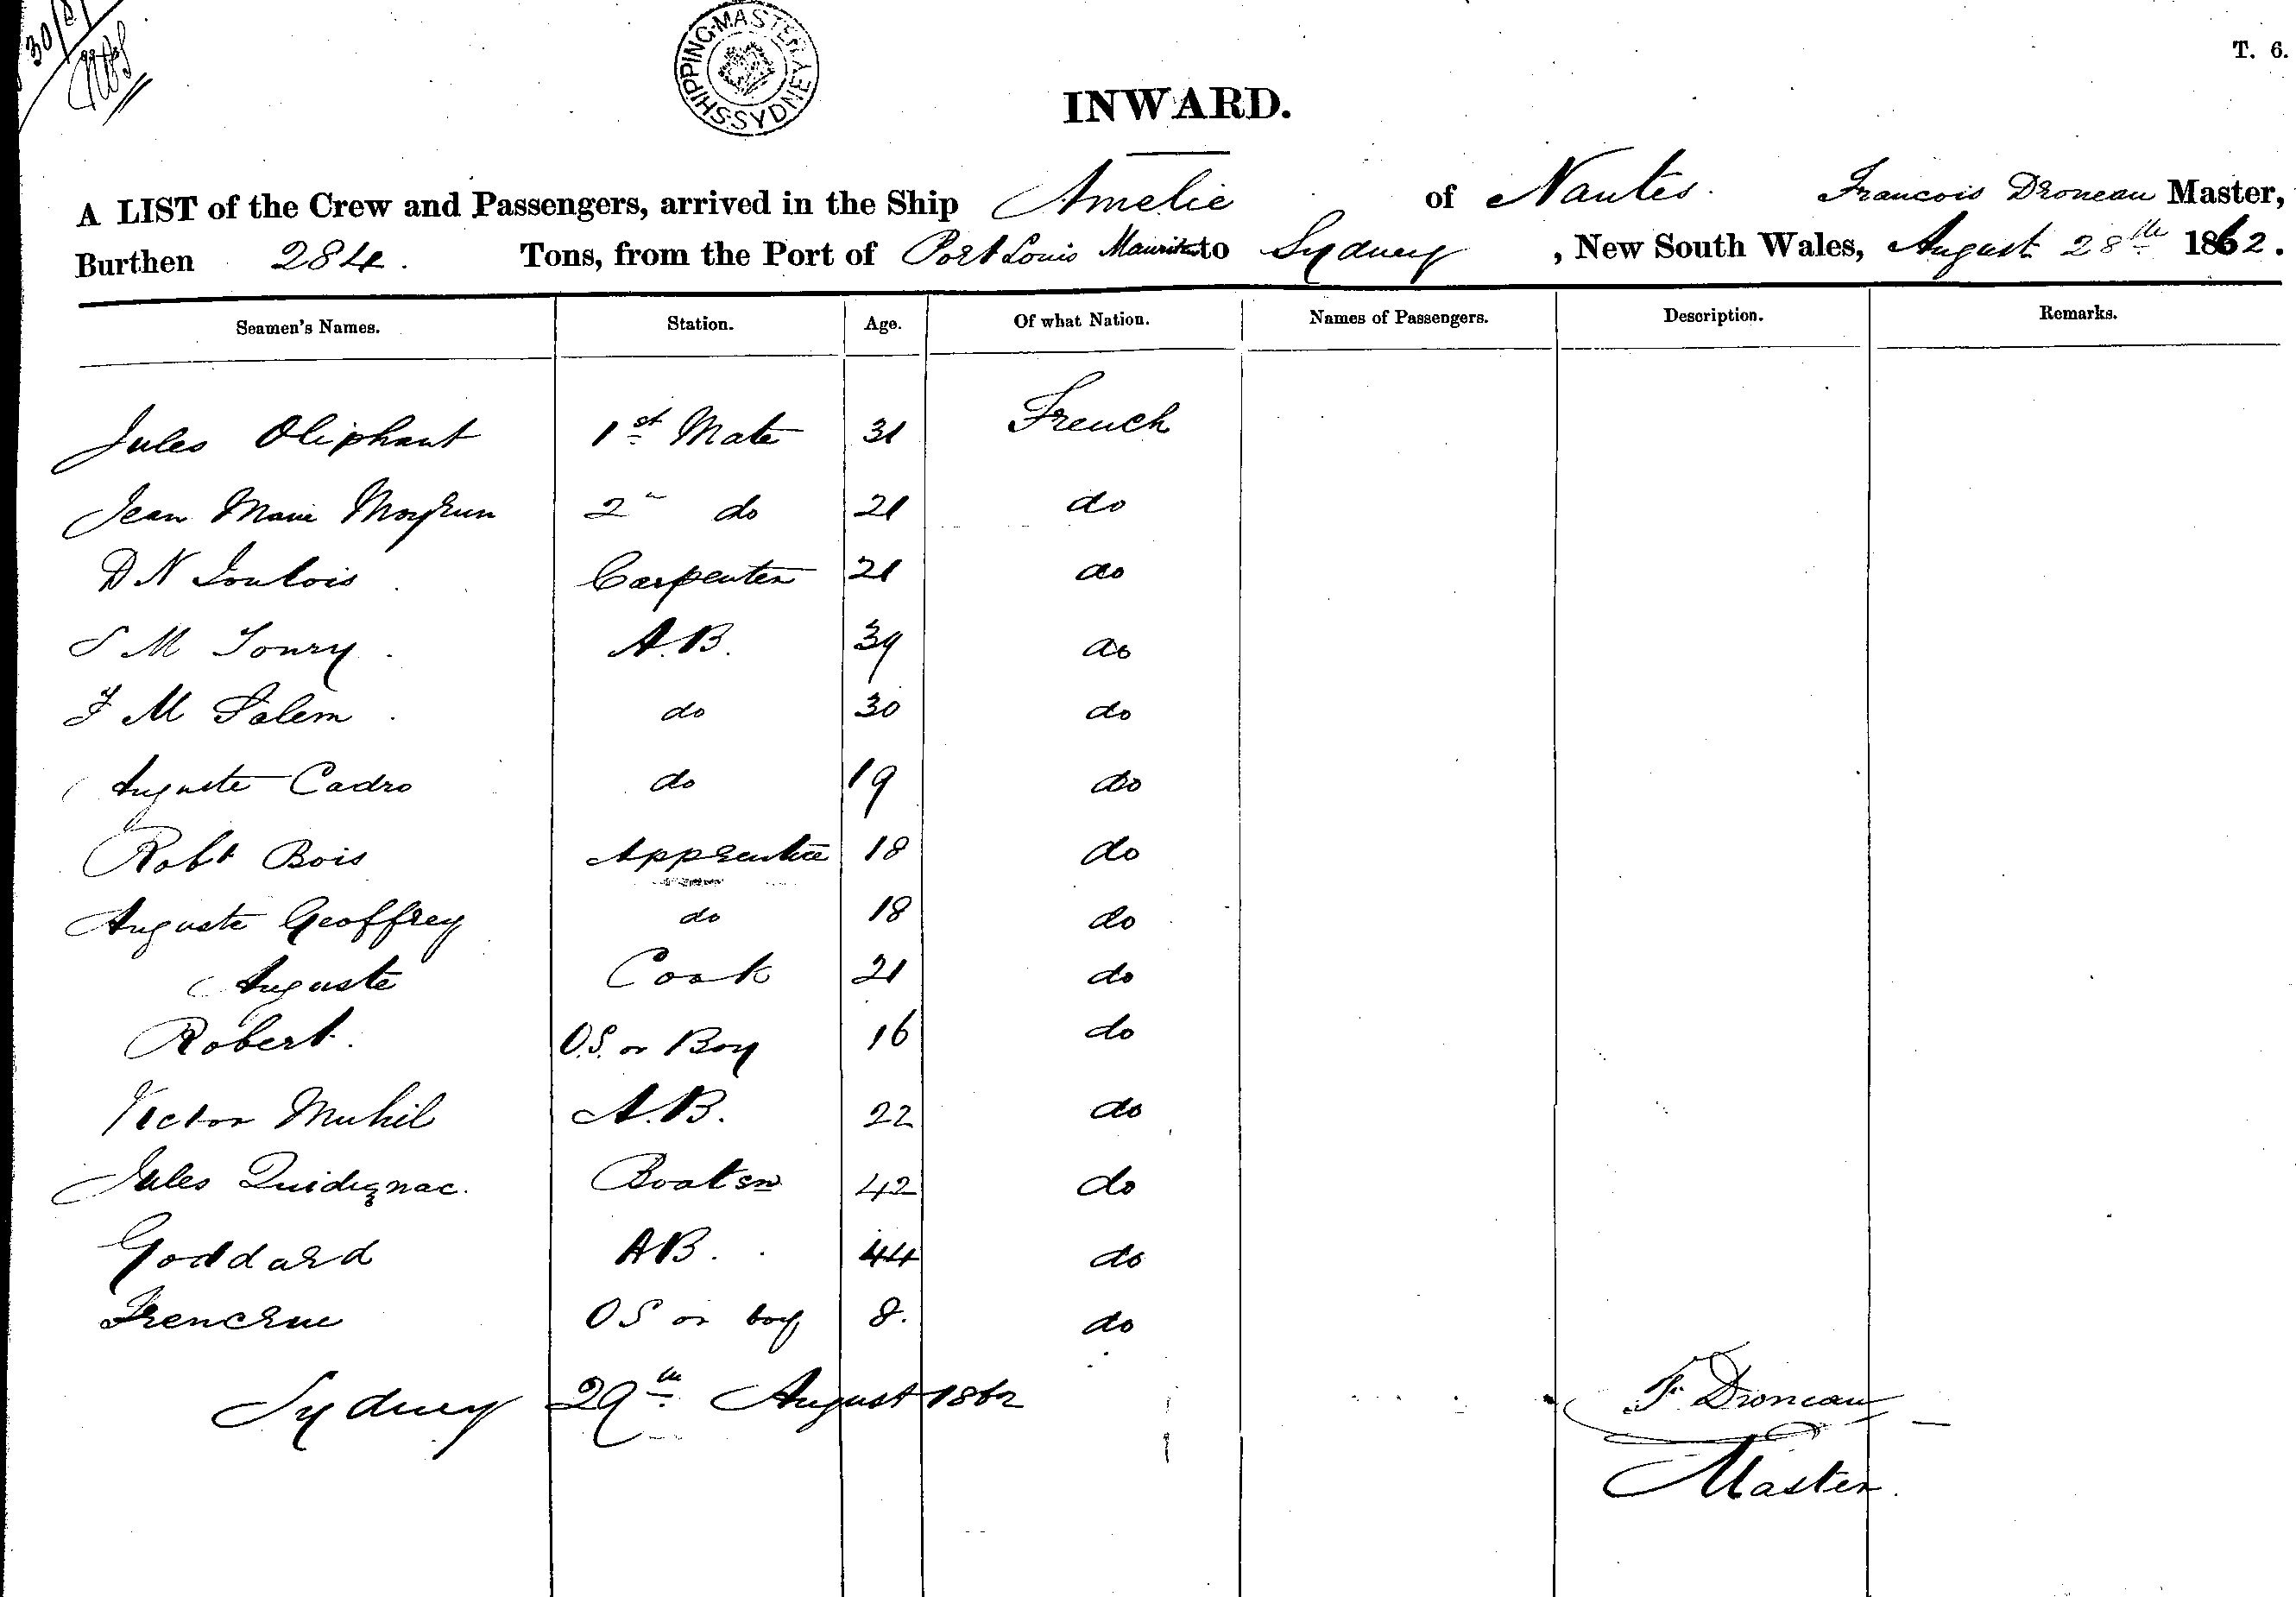 30/8/
SHIPPING·MASTER SYDNEY
T. 6.
INWARD.
A LIST of the Crew and Passengers, arrived in the Ship Amelie of Nantes. Francois Droneau Master,
Burthen 284. Tons, from the Port of Port Louis Mauritius to Sydney, New South Wales, August 28th 1862.
Seamen's Names. Station. Age. Of what Nation. Names of Passengers. Description. Remarks.
Jules Oliphant 1st Mate 31 French
Jean Marie 2 do 21 do
D N Carpenter 21 do
S M Tonry A.B. 39 do
F M Salem do 30 do
Auguste Cadro do 19 do
Robt Bois Apprentice 18 do
Auguste Geoffrey do 18 do
Auguste Cook 21 do
Robert. O.S. or Boy 16 do
Victor Muhil A.B. 22 do
Jules Quidignac. Boatsn 42 do
Goddard AB. 44 do
OS or boy 8. do
Sydney 29th August 1862
F. Droneau
Master.